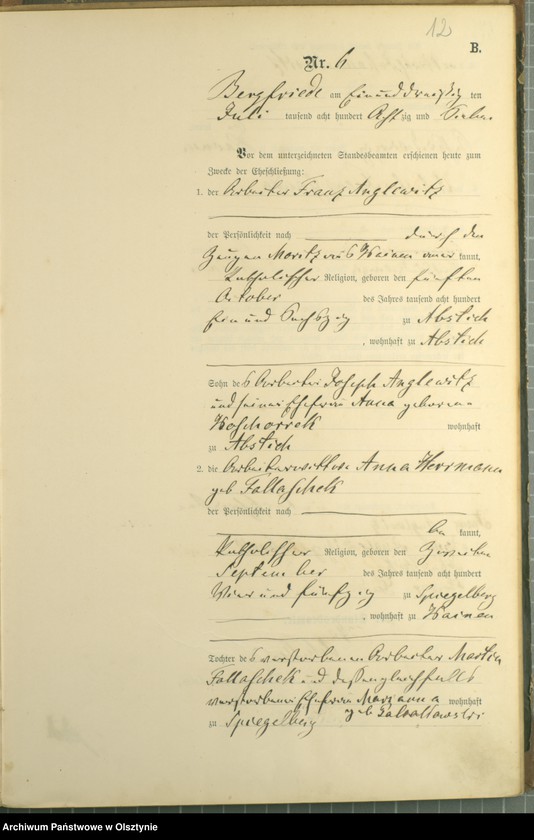 12
B.
Nr. 6
Bergfriede am Einunddreißig ten
Juli tausend acht hundert Acht zig und Sieben
Vor dem unterzeichneten Standesbeamten erschienen heute zum
Zwecke der Eheschließung:
1. der Arbeiter Franz Anglewitz
der Persönlichkeit nach durch den
Zeugen Moritz aus Hainen aner kannt,
katholischer Religion, geboren den fünften
October des Jahres tausend acht hundert
Ein und Sechszig zu Abstich
, wohnhaft zu Abstich
Sohn des Arbeiter Joseph Anglewitz
und seiner Ehefrau Anna geborene
Koschorrek wohnhaft
zu Abstich
2. die Arbeiterwittwe Anna Herrmann
geb Fallaschek
der Persönlichkeit nach
be kannt,
katholischer Religion, geboren den Zweiten
September des Jahres tausend acht hundert
Vier und fünfzig zu Spiegelberg
, wohnhaft zu Hainen
Tochter des verstorbenen Arbeiter Martin
Fallaschek und dessen gleichfalls
verstorbenen Ehefrau Maryanna wohnhaft
geb
zu Spiegelberg
Archiwum Państwowe w Olsztynie